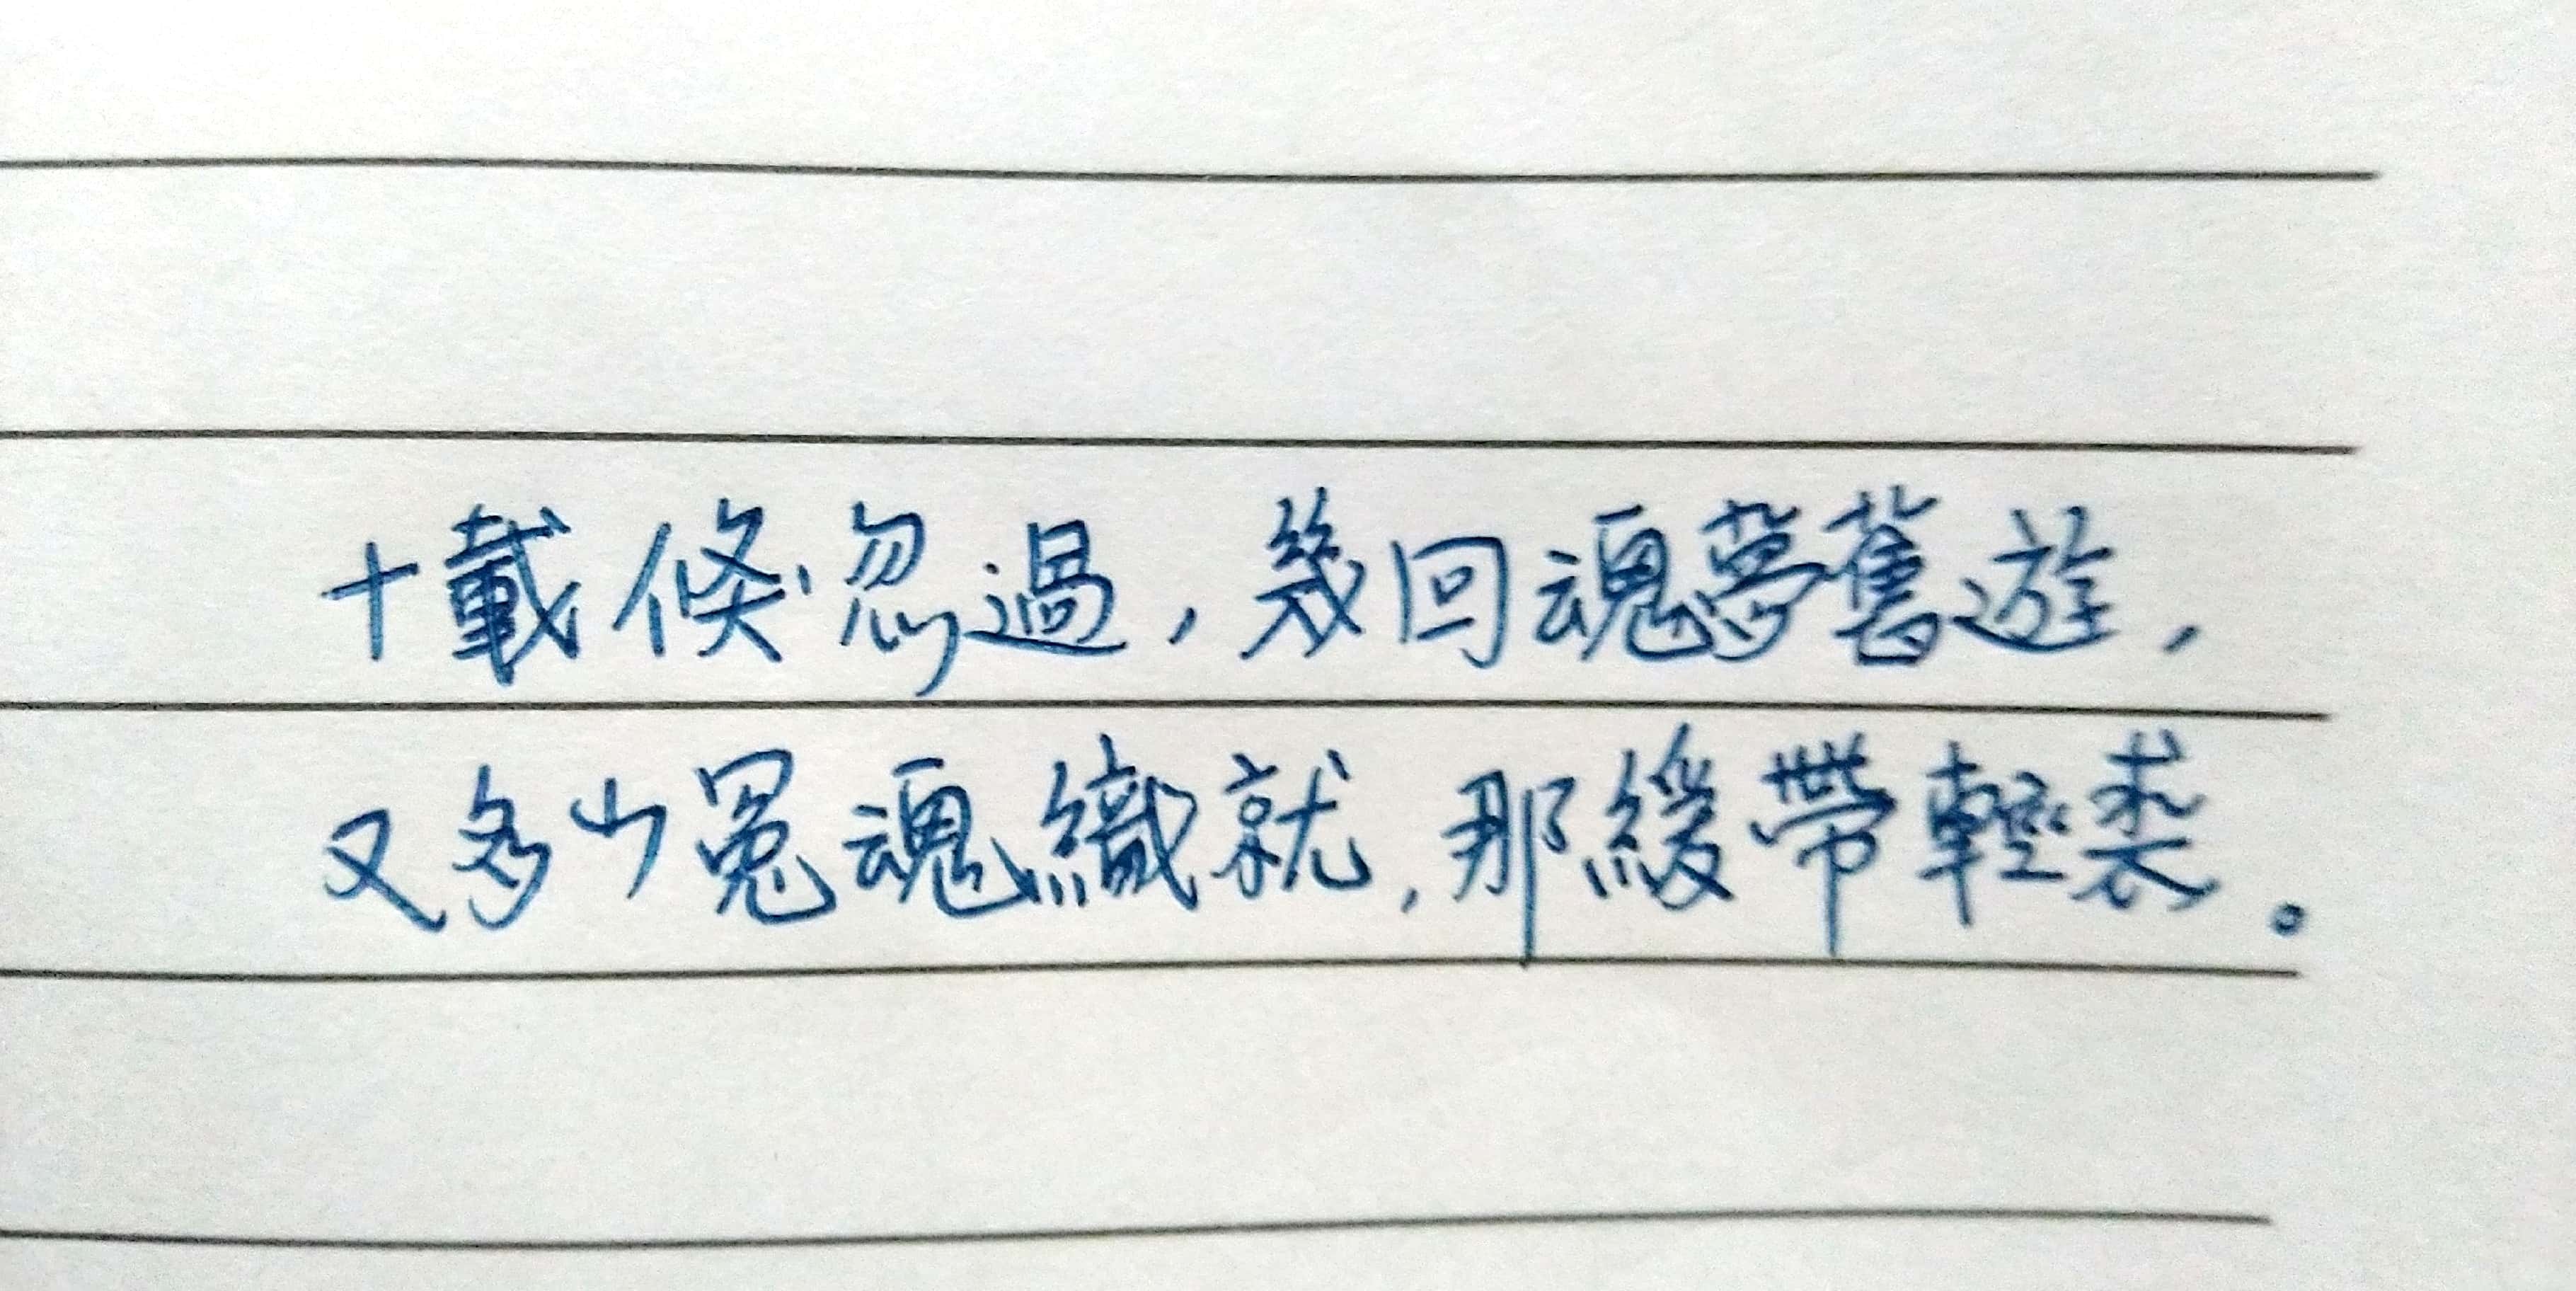 十載倏忽過，幾回魂夢舊遊，
又多少冤魂織就，那緩帶輕裘。